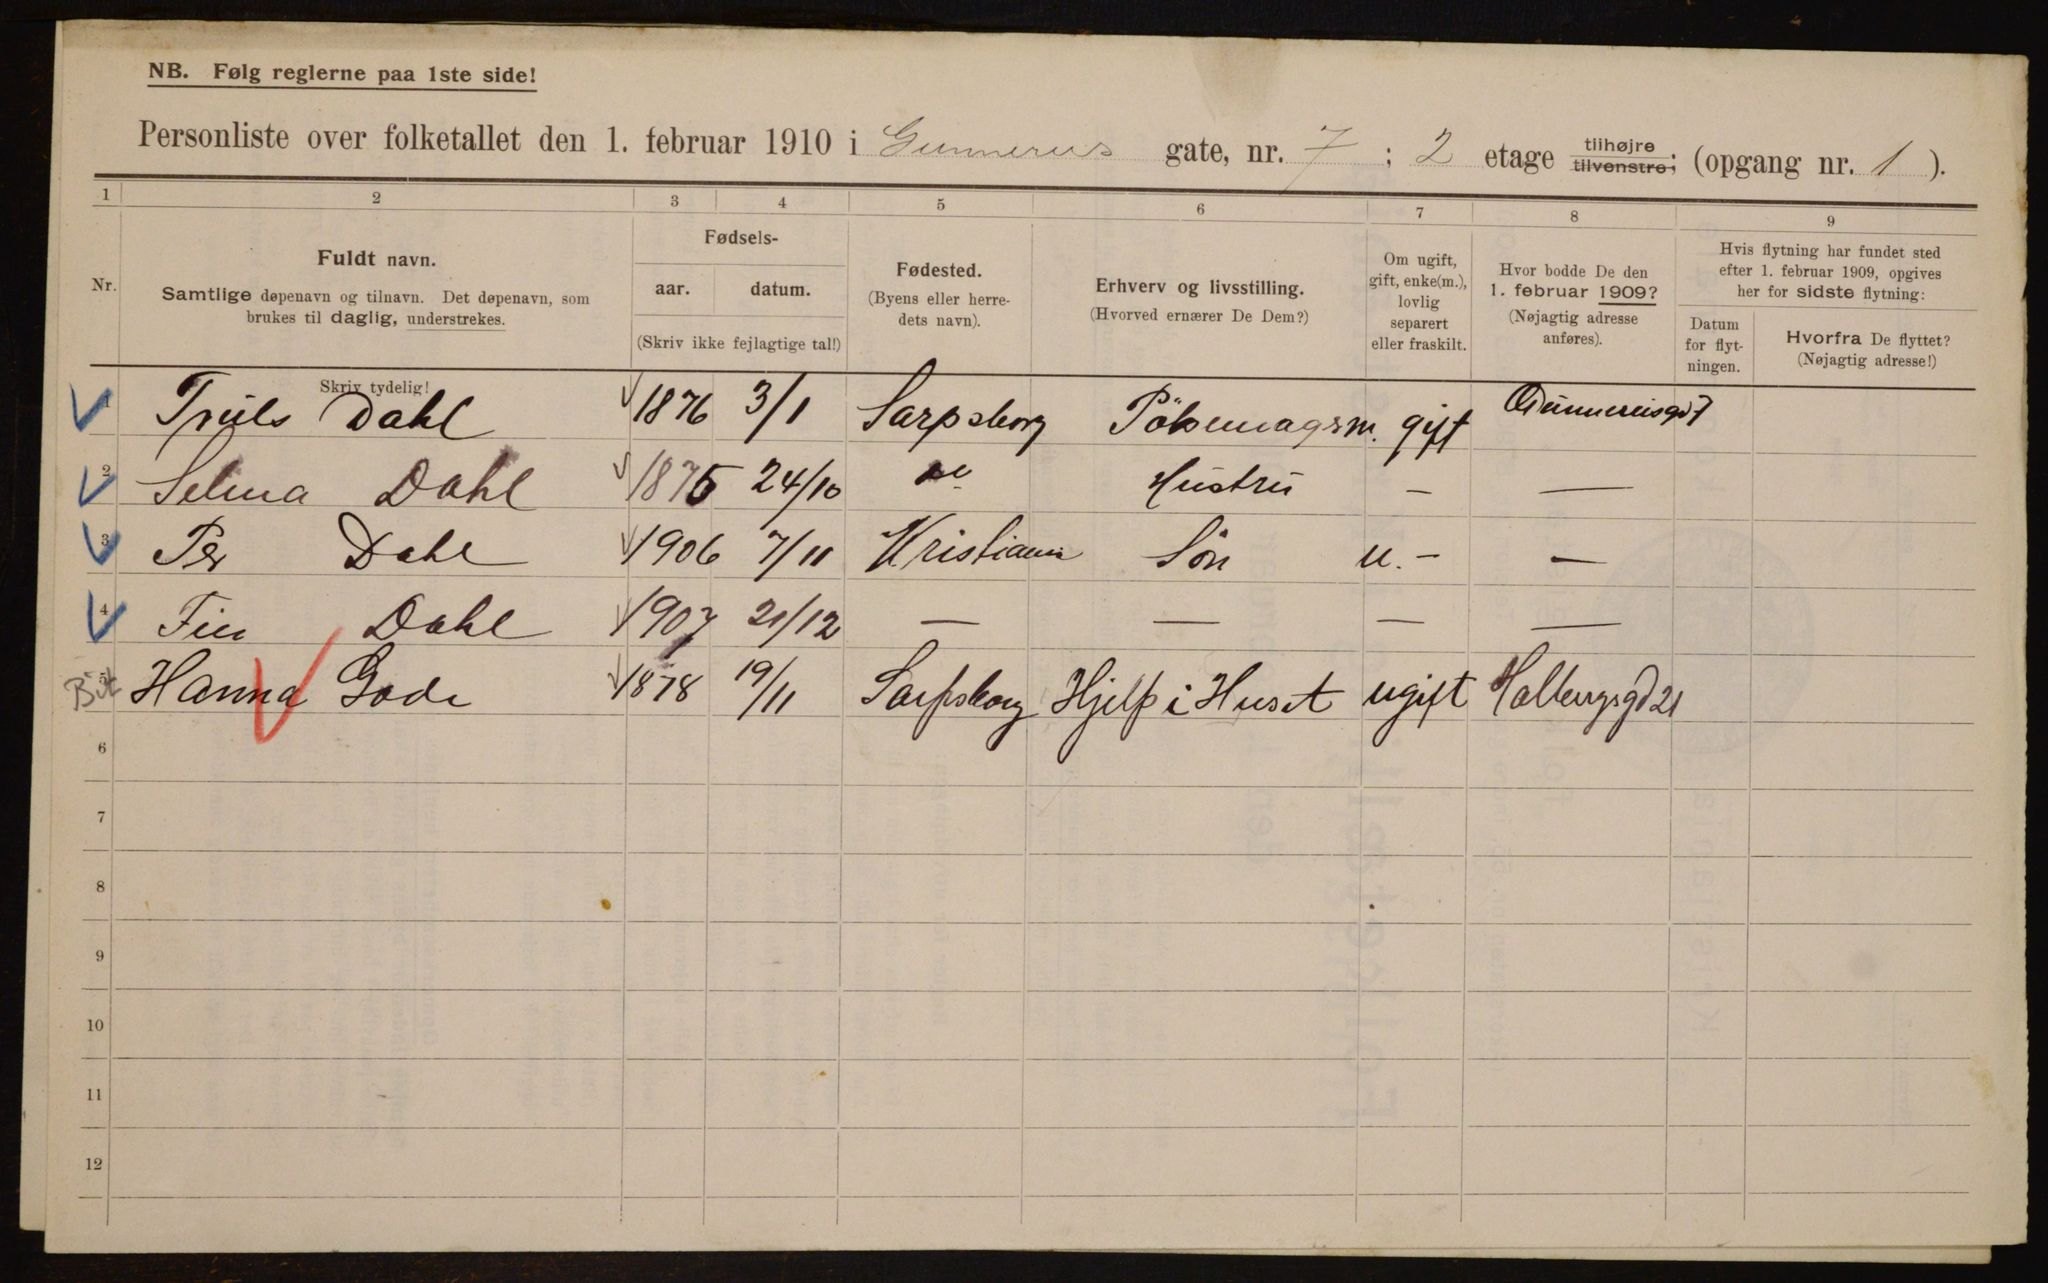 NB. Følg reglerne paa 1ste side!
Personliste over folketallet den 1. februar 1910 i Gunnerus gate, nr. 7 ; 2 etage tilhøjre tilvenstre; (opgang nr. 1 ).
1 2 3 4 5 6 7 8 9
Nr.
Fuldt navn.
Samtlige døpenavn og tilnavn. Det døpenavn, som
brukes til daglig, understrekes.
Skriv tydelig!
Fødsels-
aar. datum.
(Skriv ikke fejlagtige tal!)
Fødested.
(Byens eller herre-
dets navn).
Erhverv og livsstilling.
(Hvorved ernærer De Dem?)
Om ugift,
gift, enke(m.),
lovlig
separert
eller fraskilt.
Hvor bodde De den
1. februar 1909?
(Nøjagtig adresse
anføres).
Hvis flytning har fundet sted
efter 1. februar 1909, opgives
her for sidste flytning:
Datum
for flyt-
ningen.
Hvorfra De flyttet?
(Nøjagtig adresse!)
1 Truls Dahl 1876 3/1 Sarpsborg gift Gunnerusgd 7
2 Selma Dahl 1875 24/10 do Hustru — —
3 Per Dahl 1906 7/11 Kristiania Sön u. — —
4 Fin Dahl 1907 21/12 — — — —
5 Hanna Gode 1878 19/11 Sarpsborg Hjelp i Huset ugift Holbergsgd 21
6
7
8
9
10
11
12